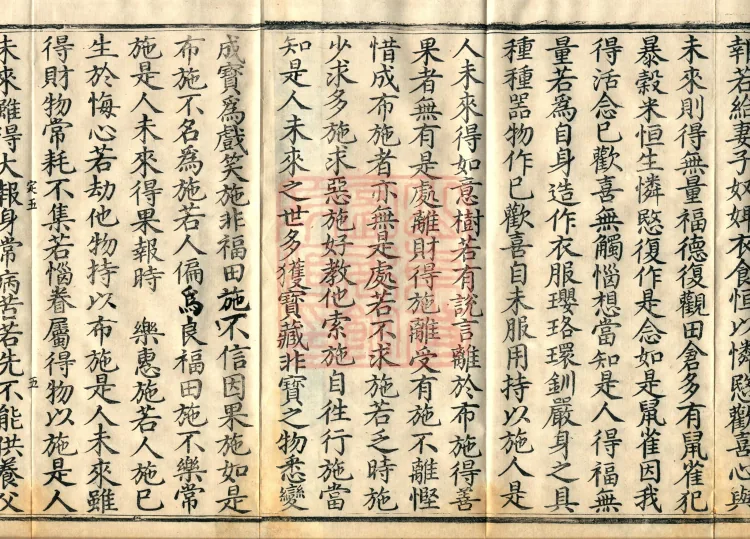 報若給妻子奴婢衣食恒以憐愍歡喜心與
未來則得無量福德復觀田倉多有鼠雀犯
暴穀米恒生憐愍復作是念如是鼠雀因我
得活念已歡喜無觸惱想當知是人得福無
量若為自身造作衣服瓔珞環釧嚴身之具
種種器物作已歡喜自未服用持以施人是
人未來得如意樹若有說言離於布施得善
果者無有是處離財得施離受有施不離慳
惜成布施者亦無是處若不求施若乏時施
少求多施求惡施好教他索施自往行施當
知是人未來之世多獲寶藏非寶之物悉變
成寶為戲笑施非福田施不信因果施如是
布施不名為施若人偏為良福田施不樂常
施是人未來得果報時 樂惠施若人施已
生於悔心若劫他物持以布施是人未來雖
得財物常耗不集若惱眷屬得物以施是人
定五 五
未來雖得大報身常病苦若先不能供養父